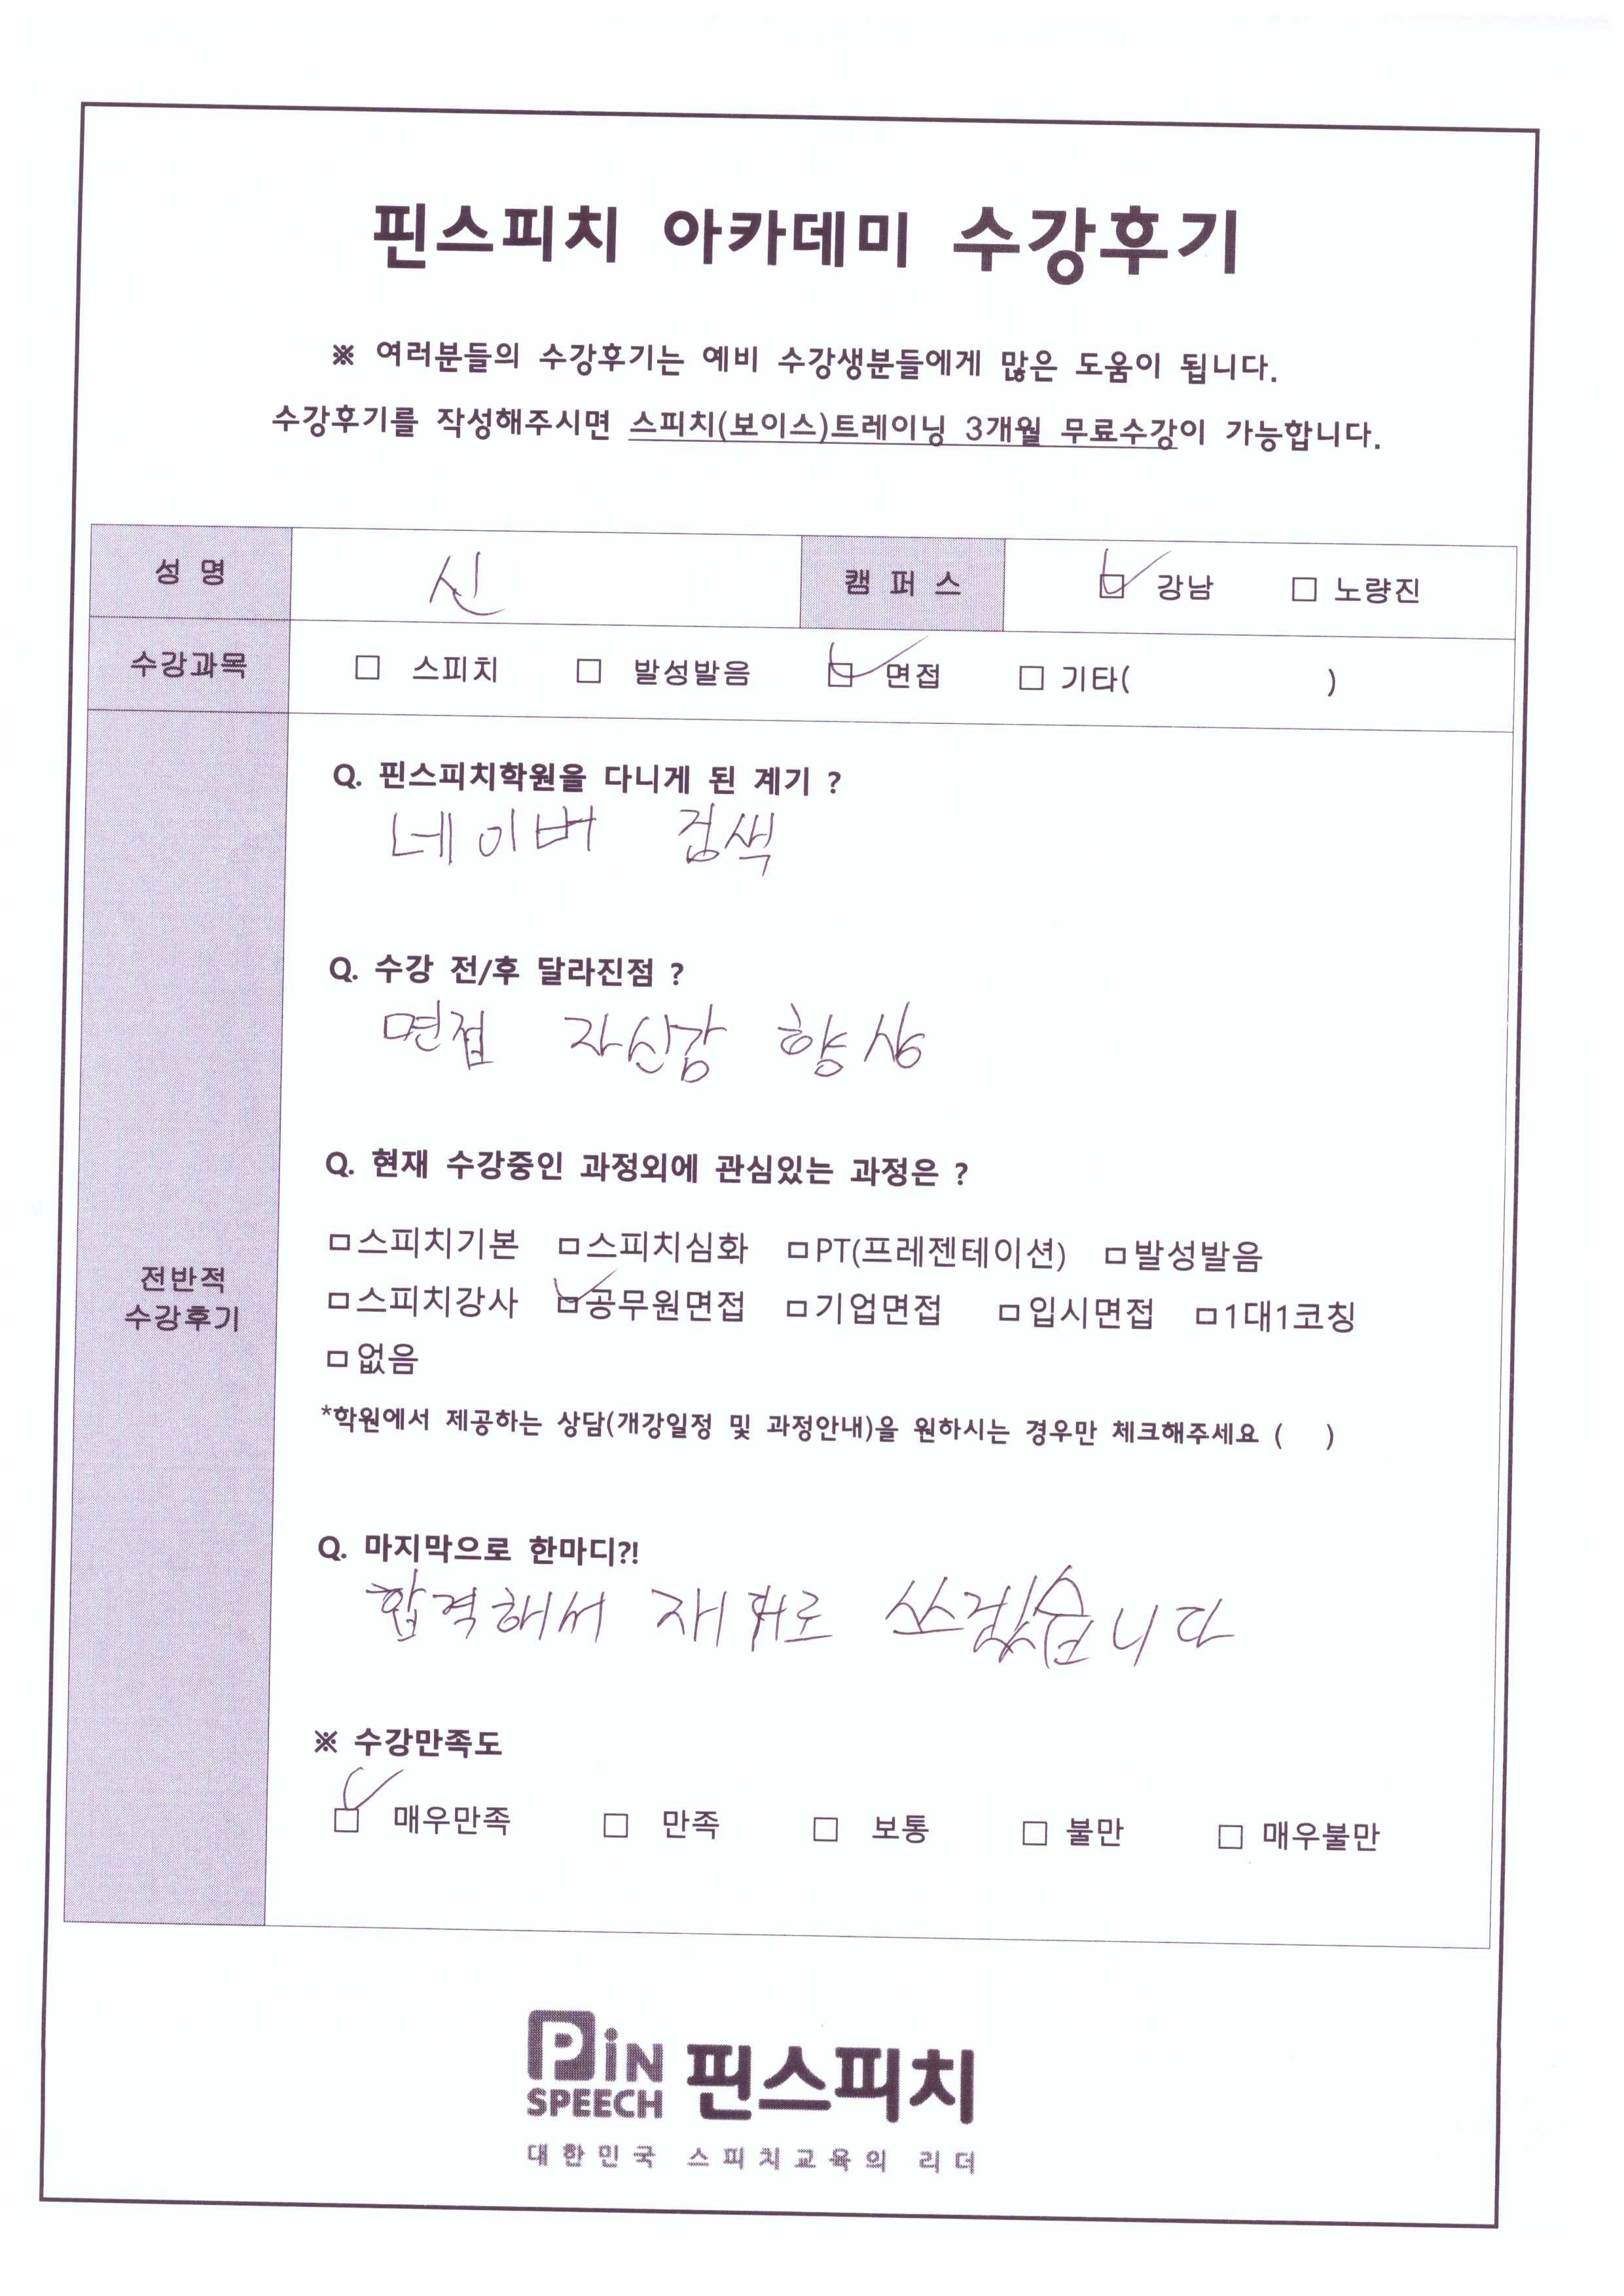 핀스피치 아카데미 수강후기
※ 여러분들의 수강후기는 예비 수강생분들에게 많은 도움이 됩니다.
수강후기를 작성해주시면 스피치(보이스)트레이닝 3개월 무료수강이 가능합니다.
성 명 신 캠 퍼 스 ☑ 강남 □ 노량진
수강과목 □ 스피치 □ 발성발음 ☑ 면접 □ 기타( )
전반적
수강후기
Q. 핀스피치학원을 다니게 된 계기 ?
네이버 검색
Q. 수강 전/후 달라진점 ?
면접 자신감 향상
Q. 현재 수강중인 과정외에 관심있는 과정은 ?
□스피치기본 □스피치심화 □PT(프레젠테이션) □발성발음
□스피치강사 ☑공무원면접 □기업면접 □입시면접 □1대1코칭
□없음
*학원에서 제공하는 상담(개강일정 및 과정안내)을 원하시는 경우만 체크해주세요 ( )
Q. 마지막으로 한마디?!
합격해서 쓰겠습니다
※ 수강만족도
☑ 매우만족 □ 만족 □ 보통 □ 불만 □ 매우불만
PiN
SPEECH
핀스피치
대한민국 스피치교육의 리더